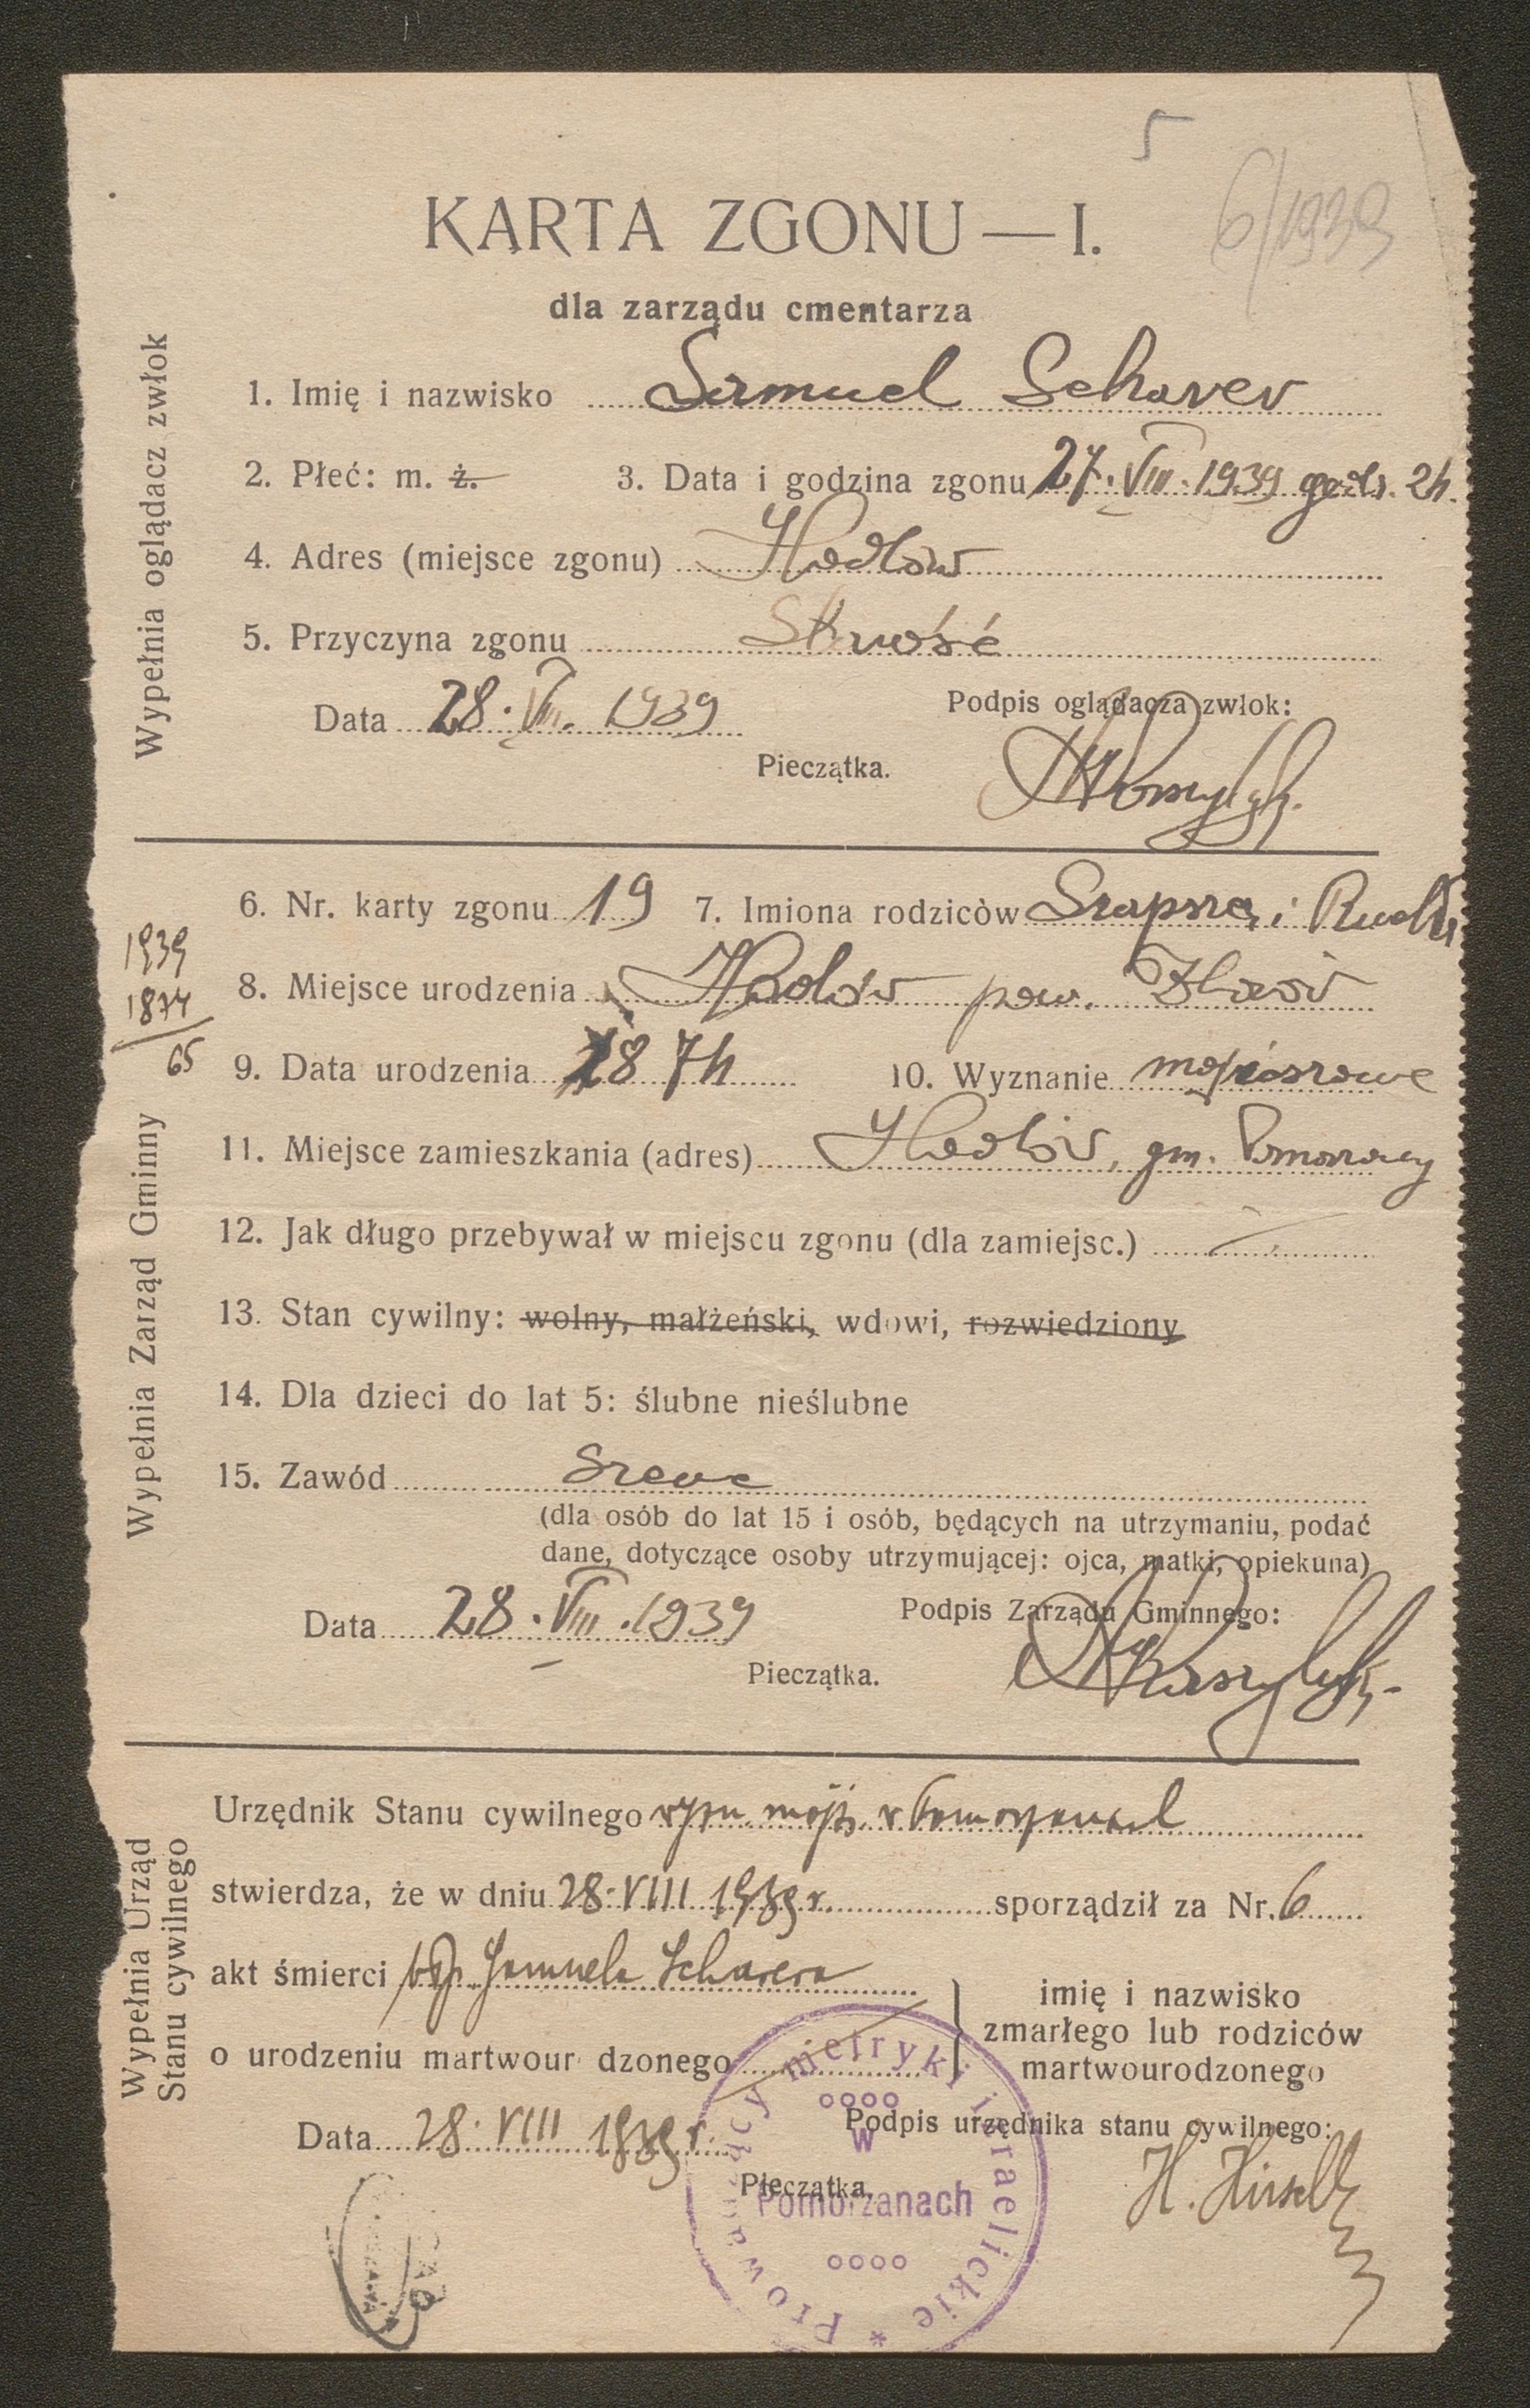 5
6/1939
KARTA ZGONU — I.
dla zarządu cmentarza
Wypełnia oglądacz zwłok
1. Imię i nazwisko Samuel Scharer
2. Płeć: m. ż. 3. Data i godzina zgonu 27. VIII. 1939 godz. 2h.
4. Adres (miejsce zgonu) Hodów
5. Przyczyna zgonu Starość
Data 28. VIII. 1939 Podpis oglądacza zwłok:
Pieczątka.
6. Nr. karty zgonu 19 7. Imiona rodziców i
1939
1874
65
8. Miejsce urodzenia Hodów pow. Zborów
9. Data urodzenia 1874 10. Wyznanie mojżeszowe
Wypełnia Zarząd Gminny
11. Miejsce zamieszkania (adres) Hodów, gm. Pomorzany
12. Jak długo przebywał w miejscu zgonu (dla zamiejsc.)
13. Stan cywilny: wolny, małżeński, wdowi, rozwiedziony
14. Dla dzieci do lat 5: ślubne nieślubne
15. Zawód Szewc
(dla osób do lat 15 i osób, będących na utrzymaniu, podać
dane, dotyczące osoby utrzymującej: ojca, matki, opiekuna)
Data 28. VIII. 1939 Podpis Zarządu Gminnego:
Pieczątka.
Wypełnia Urząd
Stanu cywilnego
Urzędnik Stanu cywilnego wyzn. mojż. w Pomorzanach
stwierdza, że w dniu 28. VIII 1939 r. sporządził za Nr. 6
akt śmierci Samuela Scharera
imię i nazwisko
zmarłego lub rodziców
martwourodzonego
o urodzeniu martwour dzonego
Data 28. VIII 1939 r. Podpis urzędnika stanu cywilnego:
Pieczątka. H.
Prowadzący metryki izraelickie *
w
Pomorzanach